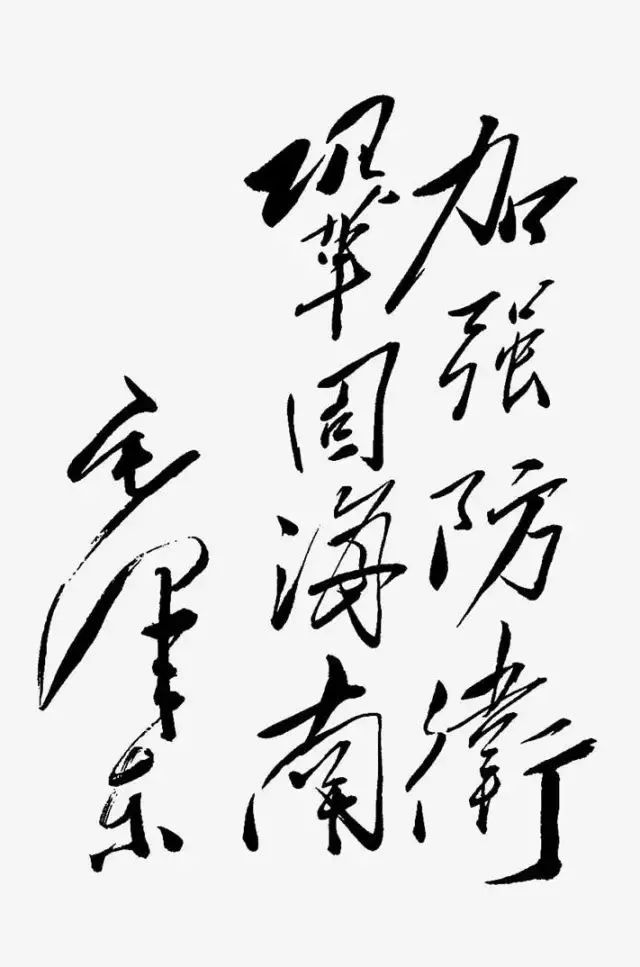 加强防衛
鞏固海南
毛泽东